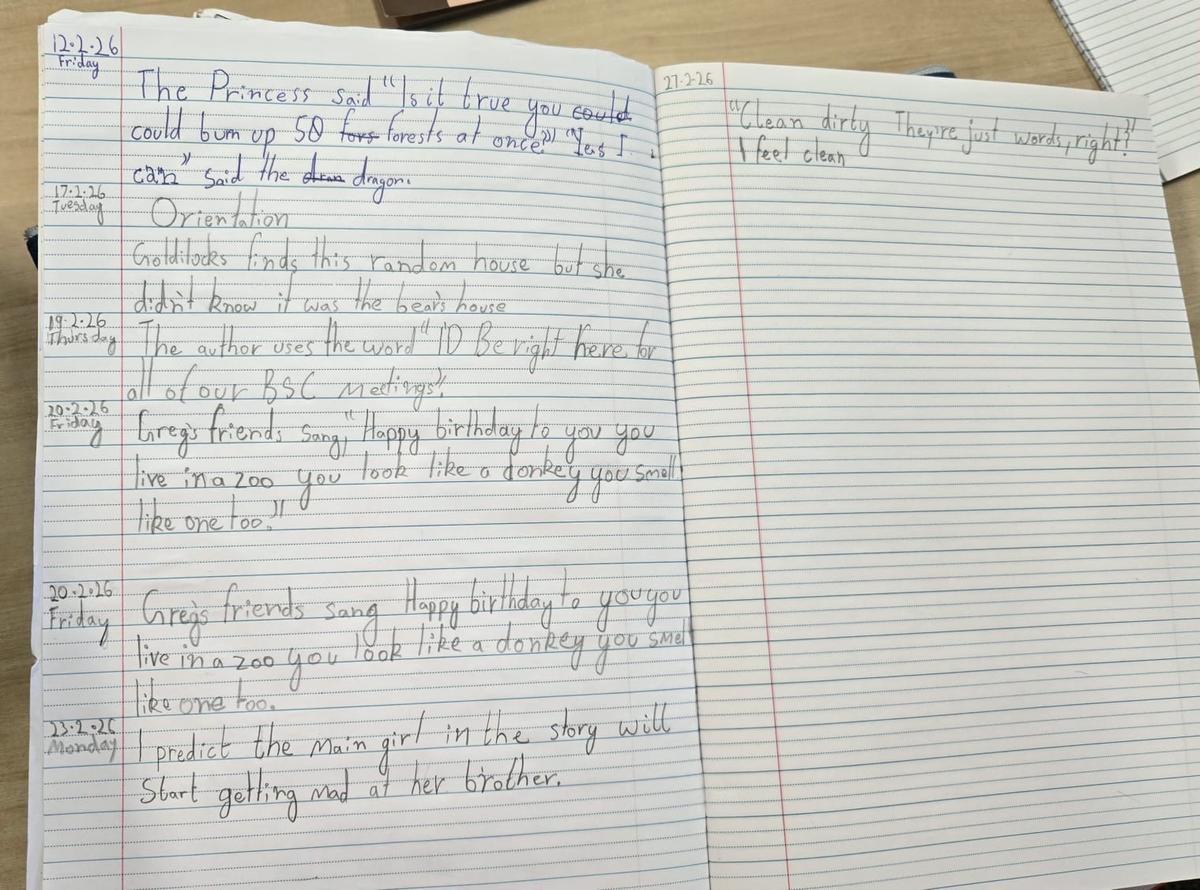 12.2.26
Friday
The Princess said "Is it true you could
could burn up 50 fors forests at once?" "Yes I
can" said the dran dragon.
17.2.26
Tuesday
Orientation
Goldilocks finds this random house but she
didn't know it was the bear's house
19.2.26
Thursday
The author uses the word "I'D Be right here for
all of our BSC Meetings".
20.2.26
Friday
Greg's friends sang, "Happy birthday to you you
live in a zoo you look like a donkey you smell
like one too."
20.2.26
Friday
Greg's friends sang Happy birthday to you you
live in a zoo you look like a donkey you smell
like one too.
23.2.26
Monday
I predict the main girl in the story will
Start getting mad at her brother.
27.2.26
"Clean dirty They're just words, right?"
I feel clean